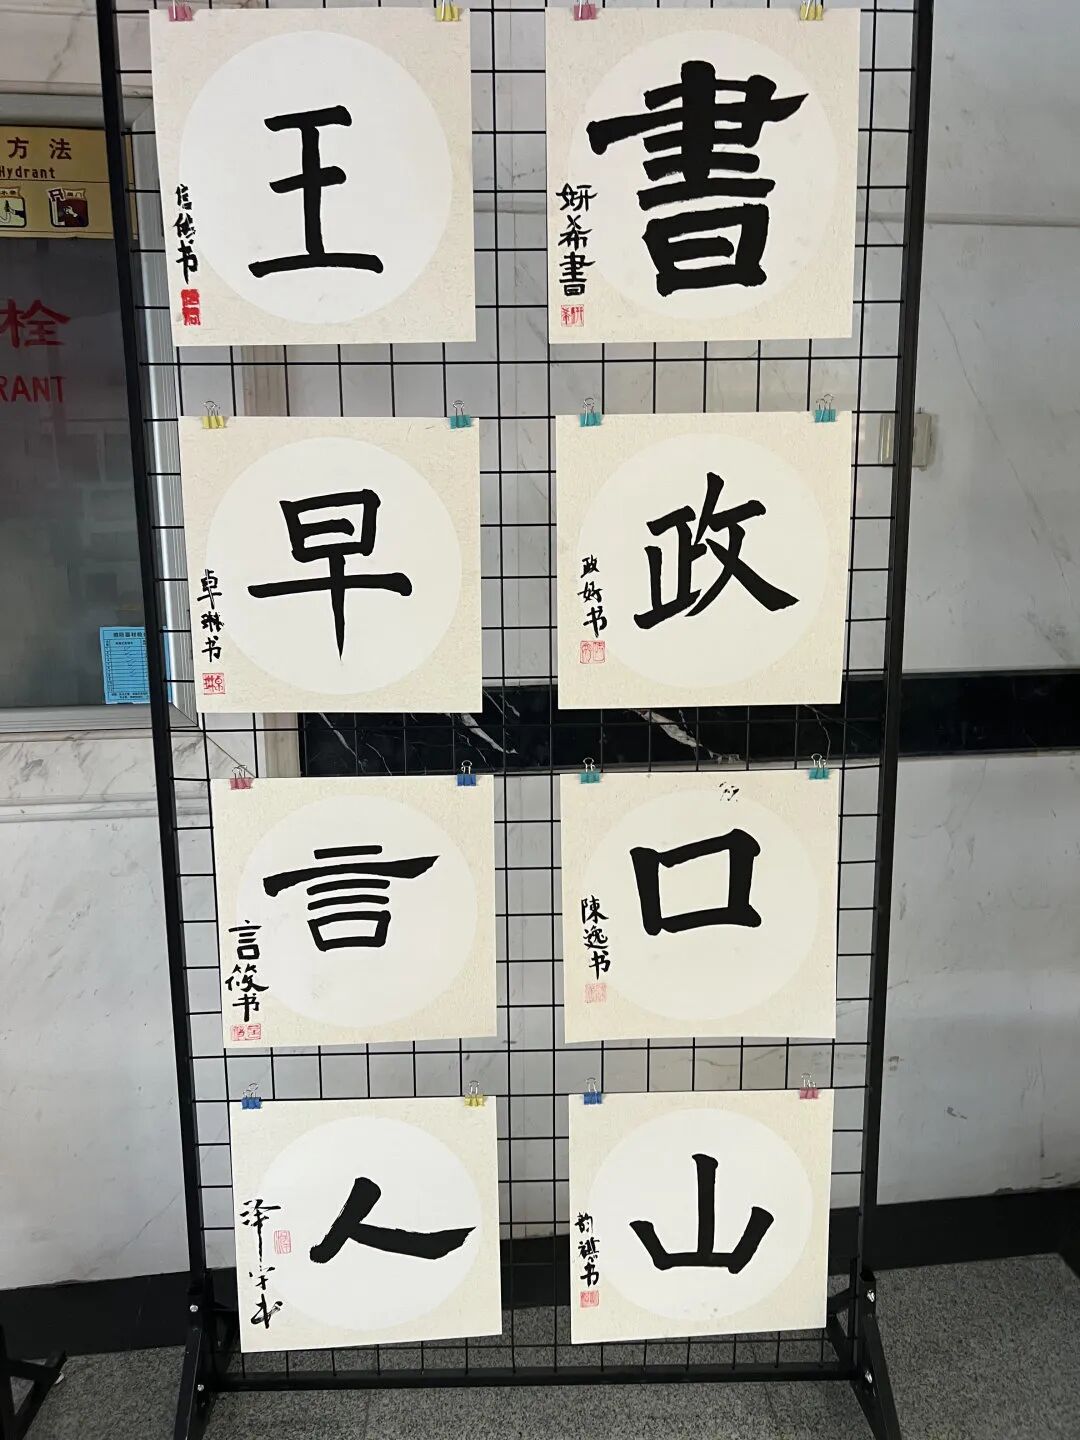 方法
Hydrant
栓
RANT
王
书
書
妍希書
早
卓琳书
政
政好书
言
言筱书
口
陳逸书
人
泽宇书
山
韵祺书